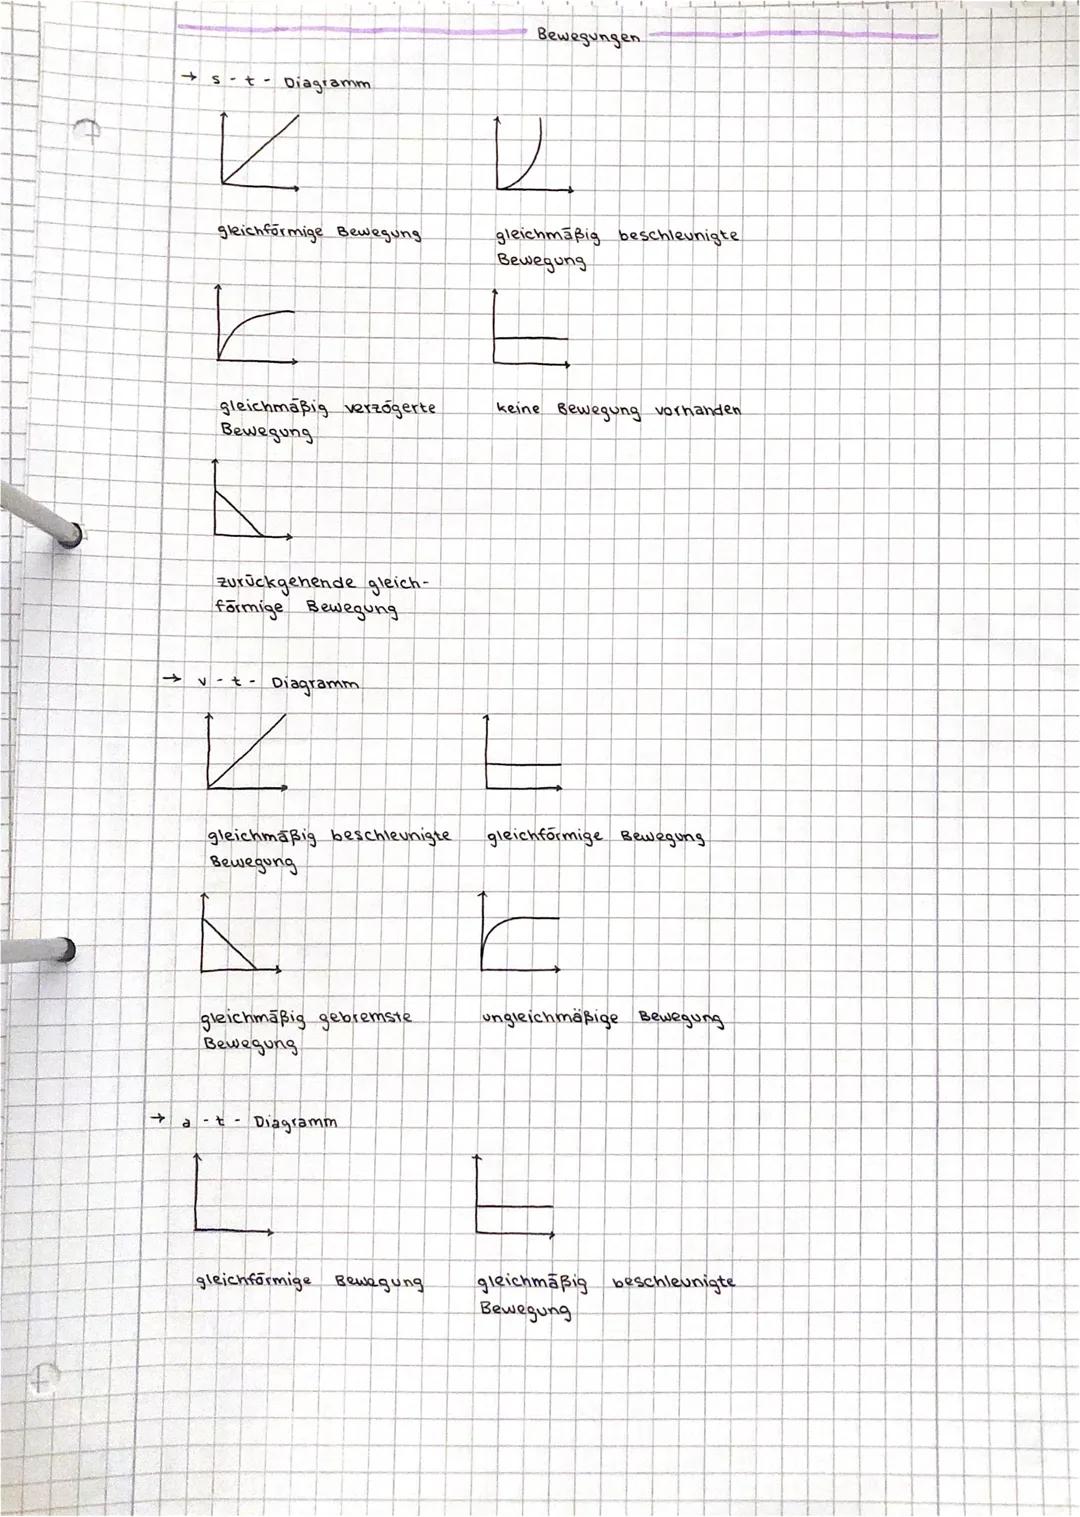 Bewegungen
→ s - t - Diagramm
gleichförmige Bewegung
gleichmäßig beschleunigte
Bewegung
gleichmäßig verzögerte
Bewegung
keine Bewegung vorhanden
zurückgehende gleich-
förmige Bewegung
→ v - t - Diagramm
gleichmäßig beschleunigte
Bewegung
gleichförmige Bewegung
gleichmäßig gebremste
Bewegung
ungleichmäßige Bewegung
→ a - t - Diagramm
gleichförmige Bewegung
gleichmäßig beschleunigte
Bewegung